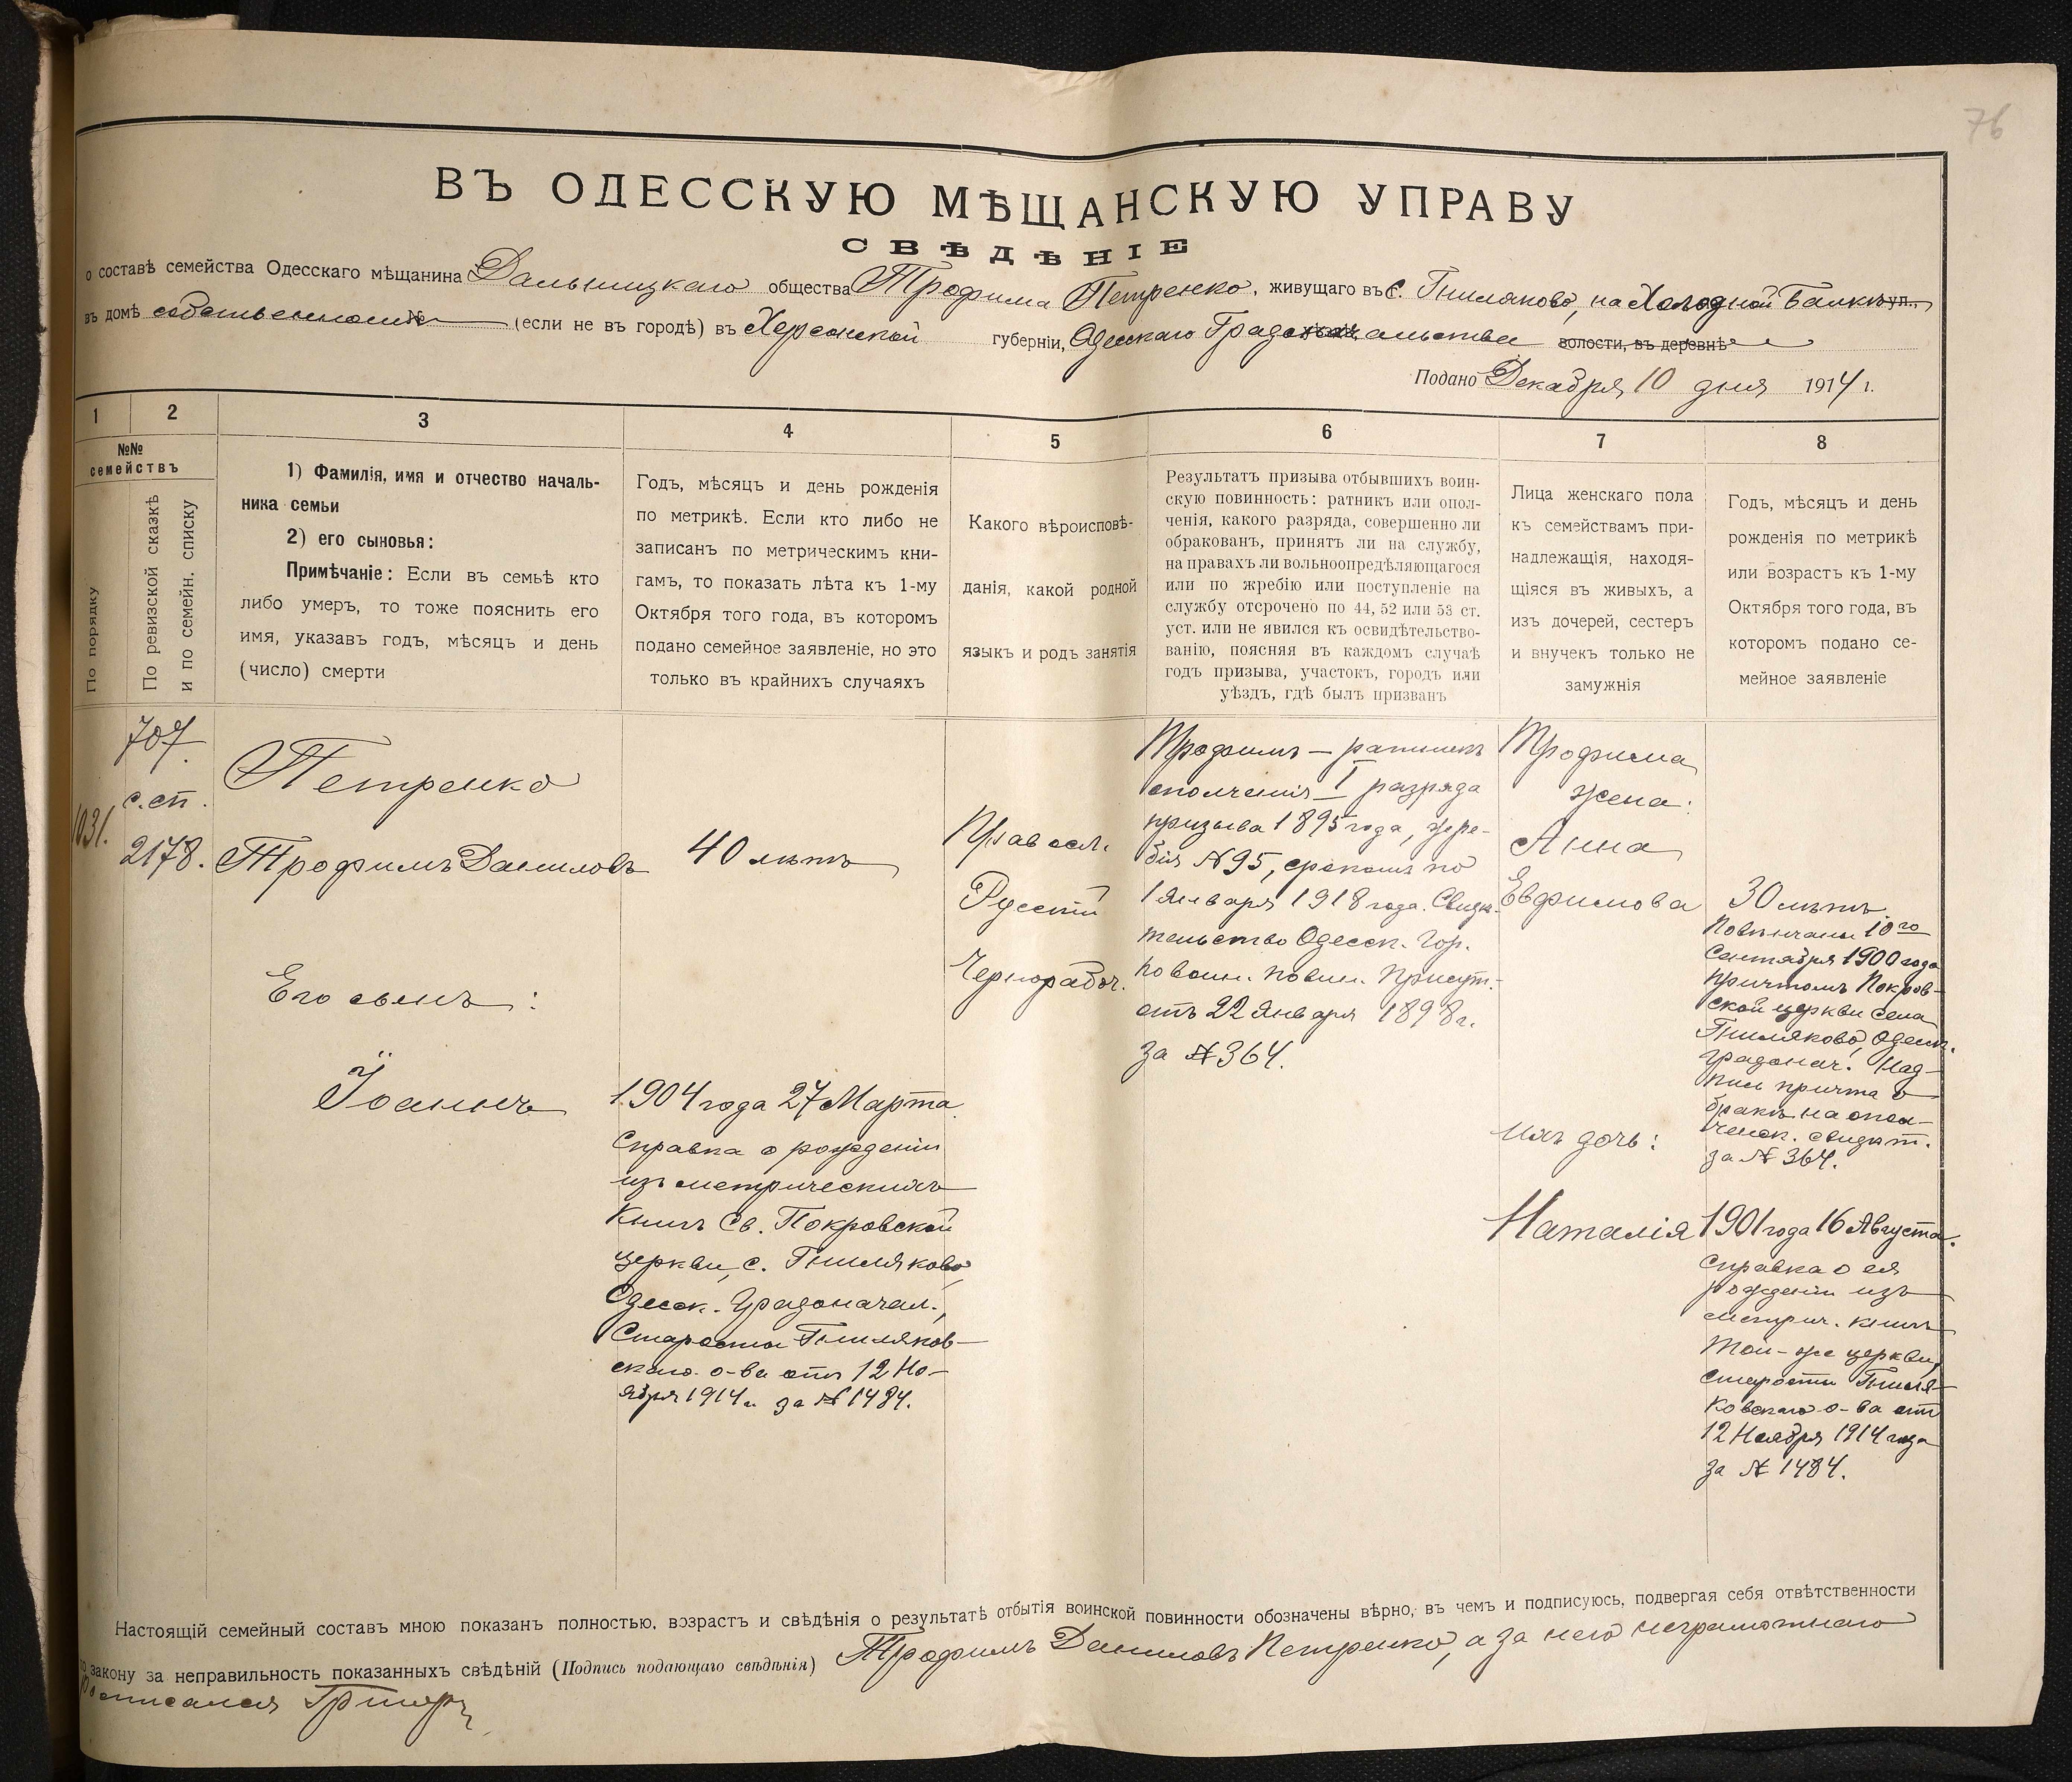 76
ВЪ ОДЕССКУЮ МѢЩАНСКУЮ УПРАВУ
СВѢДѢНІЕ
о составѣ семейства Одесскаго мѣщанина Дальницкаго общества Трофима Петренко, живущаго въ с. Гниляково, на Холодной Балкѣ ул.,
въ домѣ собственномъ № (если не въ городѣ) въ Херсонской губерніи, Одесскаго Градоначальства волости, въ деревнѣ
Подано Декабря 10 дня 1914 г.
1 2 3 4 5 6 7 8
№№
семействъ
По порядку
По ревизской сказкѣ
и по семейн. списку
1) Фамилія, имя и отчество началь-
ника семьи
2) его сыновья:
Примѣчаніе: Если въ семьѣ кто
либо умеръ, то тоже пояснить его
имя, указавъ годъ, мѣсяцъ и день
(число) смерти
Годъ, мѣсяцъ и день рожденія
по метрикѣ. Если кто либо не
записанъ по метрическимъ кни-
гамъ, то показать лѣта къ 1-му
Октября того года, въ которомъ
подано семейное заявленіе, но это
только въ крайнихъ случаяхъ
Какого вѣроисповѣ-
данія, какой родной
языкъ и родъ занятія
Результатъ призыва отбывшихъ воин-
скую повинность: ратникъ или опол-
ченія, какого разряда, совершенно ли
обракованъ, принятъ ли на службу,
на правахъ ли вольноопредѣляющагося
или по жребію или поступленіе на
службу отсрочено по 44, 52 или 53 ст.
уст. или не явился къ освидѣтельство-
ванію, поясняя въ каждомъ случаѣ
годъ призыва, участокъ, городъ или
уѣздъ, гдѣ былъ призванъ
Лица женскаго пола
къ семействамъ при-
надлежащія, находя-
щіяся въ живыхъ, а
изъ дочерей, сестеръ
и внучекъ только не
замужнія
Годъ, мѣсяцъ и день
рожденія по метрикѣ
или возрастъ къ 1-му
Октября того года, въ
которомъ подано се-
мейное заявленіе
1031.
707.
с. сп.
2178.
Петренко
Трофимъ Даниловъ
Его сынъ:
Іоаннъ
40 лѣтъ
1904 года 27 Марта
Справка о рожденіи
изъ метрическихъ
книгъ Св. Покровской
церкви, с. Гниляково,
Одесск. Градоначал.,
Старосты Гниляков-
скаго о-ва отъ 12 Но-
ября 1914 г. за № 1484.
Правосл.
Русскій
Чернорабоч.
Трофимъ — ратникъ
ополченія I разряда
призыва 1895 года, жре-
бія № 95, срокомъ по
1 Января 1918 года. Свидѣ-
тельство Одесск. Гор.
по воин. повин. Присут.
отъ 22 Января 1898 г.
за № 364.
Трофима
жена:
Анна
Евфимова
Ихъ дочь:
Наталія
30 лѣтъ
Повѣнчаны 10го
Сентября 1900 года
Причтомъ Покров-
ской церкви села
Гниляково, Одесск.
Градонач. Над-
пись причта о
бракѣ на опол-
ченск. свидѣт.
за № 364.
1901 года 16 Августа.
Справка о ея
рожденіи изъ
метрич. книгъ
той-же церкви,
старосты Гниля-
ковскаго о-ва отъ
12 Ноября 1914 года
за № 1484.
Настоящій семейный составъ мною показанъ полностью, возрастъ и свѣдѣнія о результатѣ отбытія воинской повинности обозначены вѣрно, въ чемъ и подписуюсь, подвергая себя отвѣтственности
по закону за неправильность показанныхъ свѣдѣній (Подпись подающаго свѣдѣнія) Трофимъ Даниловъ Петренко, а за него неграмотнаго
росписался